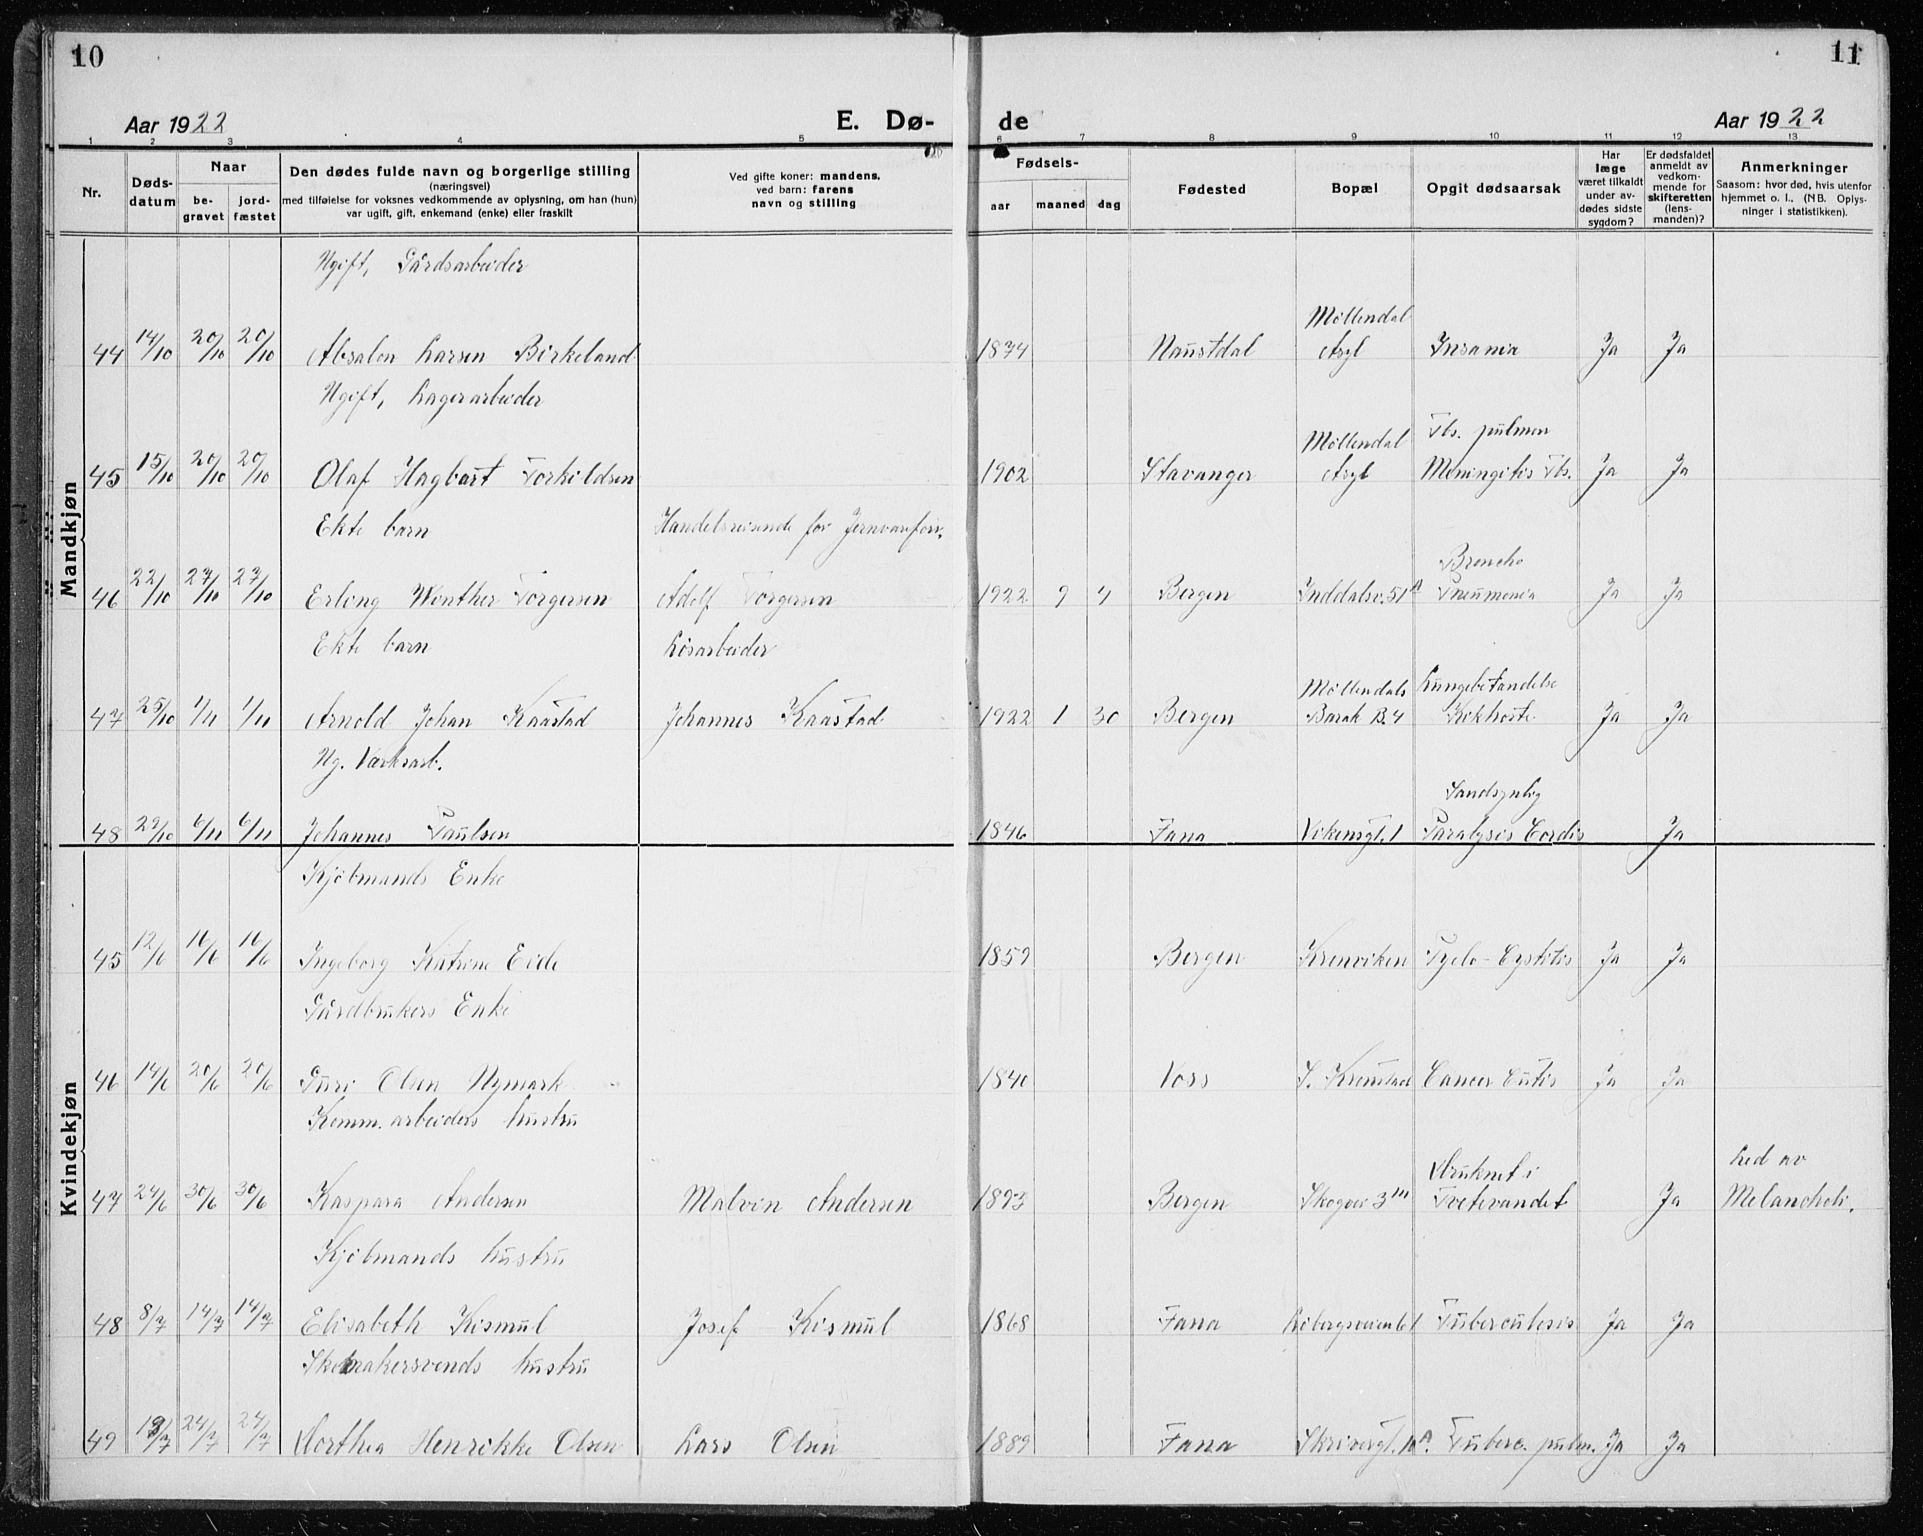 10
11
Aar 1922
E. Dø-
de
Aar 1922
1 2 3 4 5 6 7 8 9 10 11 12 13
Nr.
Døds-
datum
Naar
be-
gravet
jord-
fæstet
Den dødes fulde navn og borgerlige stilling
(næringsvei)
med tilføielse for voksnes vedkommende av oplysning, om han (hun)
var ugift, gift, enkemand (enke) eller fraskilt
Ved gifte koner: mandens,
ved barn: farens
navn og stilling
Fødsels-
aar
maaned
dag
Fødested
Bopæl
Opgit dødsaarsak
Har
læge
været tilkaldt
under av-
dødes sidste
sygdom?
Er dødsfaldet
anmeldt av
vedkom-
mende for
skifteretten
(lens-
manden)?
Anmerkninger
Saasom: hvor død, hvis utenfor
hjemmet o. l.. (NB. Oplys-
ninger i statistikken).
Mandkjøn
Ugift, Gårdsarbeider
Møllendal
44 14/10 20/10 20/10 Absalon Larsen Birkeland 1874 Naustdal Asyl Insania Ja Ja
Ugift, Lagerarbeider
Møllendal Tbs. pulmon
45 15/10 20/10 20/10 Olaf Hagbart Torkildsen 1902 Stavanger Asyl Meningitis Tbs. Ja Ja
Ekte barn Handelsreisende for Jernvareforr.
Broncho
46 22/10 27/10 27/10 Erling Winther Torgersen Adolf Torgersen 1922 9 4 Bergen Inddalsv. 51A Pneumonia Ja Ja
Ekte barn Løsarbeider
Møllendals Lungebetændelse
47 25/10 1/11 1/11 Arnold Johan Kaastad Johannes Kaastad 1922 1 30 Bergen Barak B. 4 Kikhoste Ja Ja
Ug. Værksarb.
Sandsynlig
48 29/10 6/11 6/11 Johannes Paulsen 1846 Fana Vikensgt. 1 Paralysis Cordis Ja
Kvindekjøn
Kjøbmands Enke
45 12/6 16/6 16/6 Ingeborg Katrine Eide 1859 Bergen Kronviken Pyelo-Cystitis Ja Ja
Gårdbrukers Enke
46 14/6 20/6 20/6 Guri Olsen Nymark 1840 Voss S. Kronstad Cancer Cutis Ja Ja
Komm. arbeiders hustru
Druknet i Led av
47 24/6 30/6 30/6 Kaspara Andersen Malvin Andersen 1893 Bergen Skogvei 3 Tvetevandet Ja Melancholi.
Kjøbmands hustru
48 8/7 14/7 14/7 Elisabeth Kismul Josef Kismul 1868 Fana Løbergsveien 61 Tuberculosis Ja Ja
Skomakersvends hustru
49 19/7 24/7 24/7 Dorthea Henrikke Olsen Lars Olsen 1889 Fana Skrivergt. 10A. Tuberc. pulm. Ja Ja